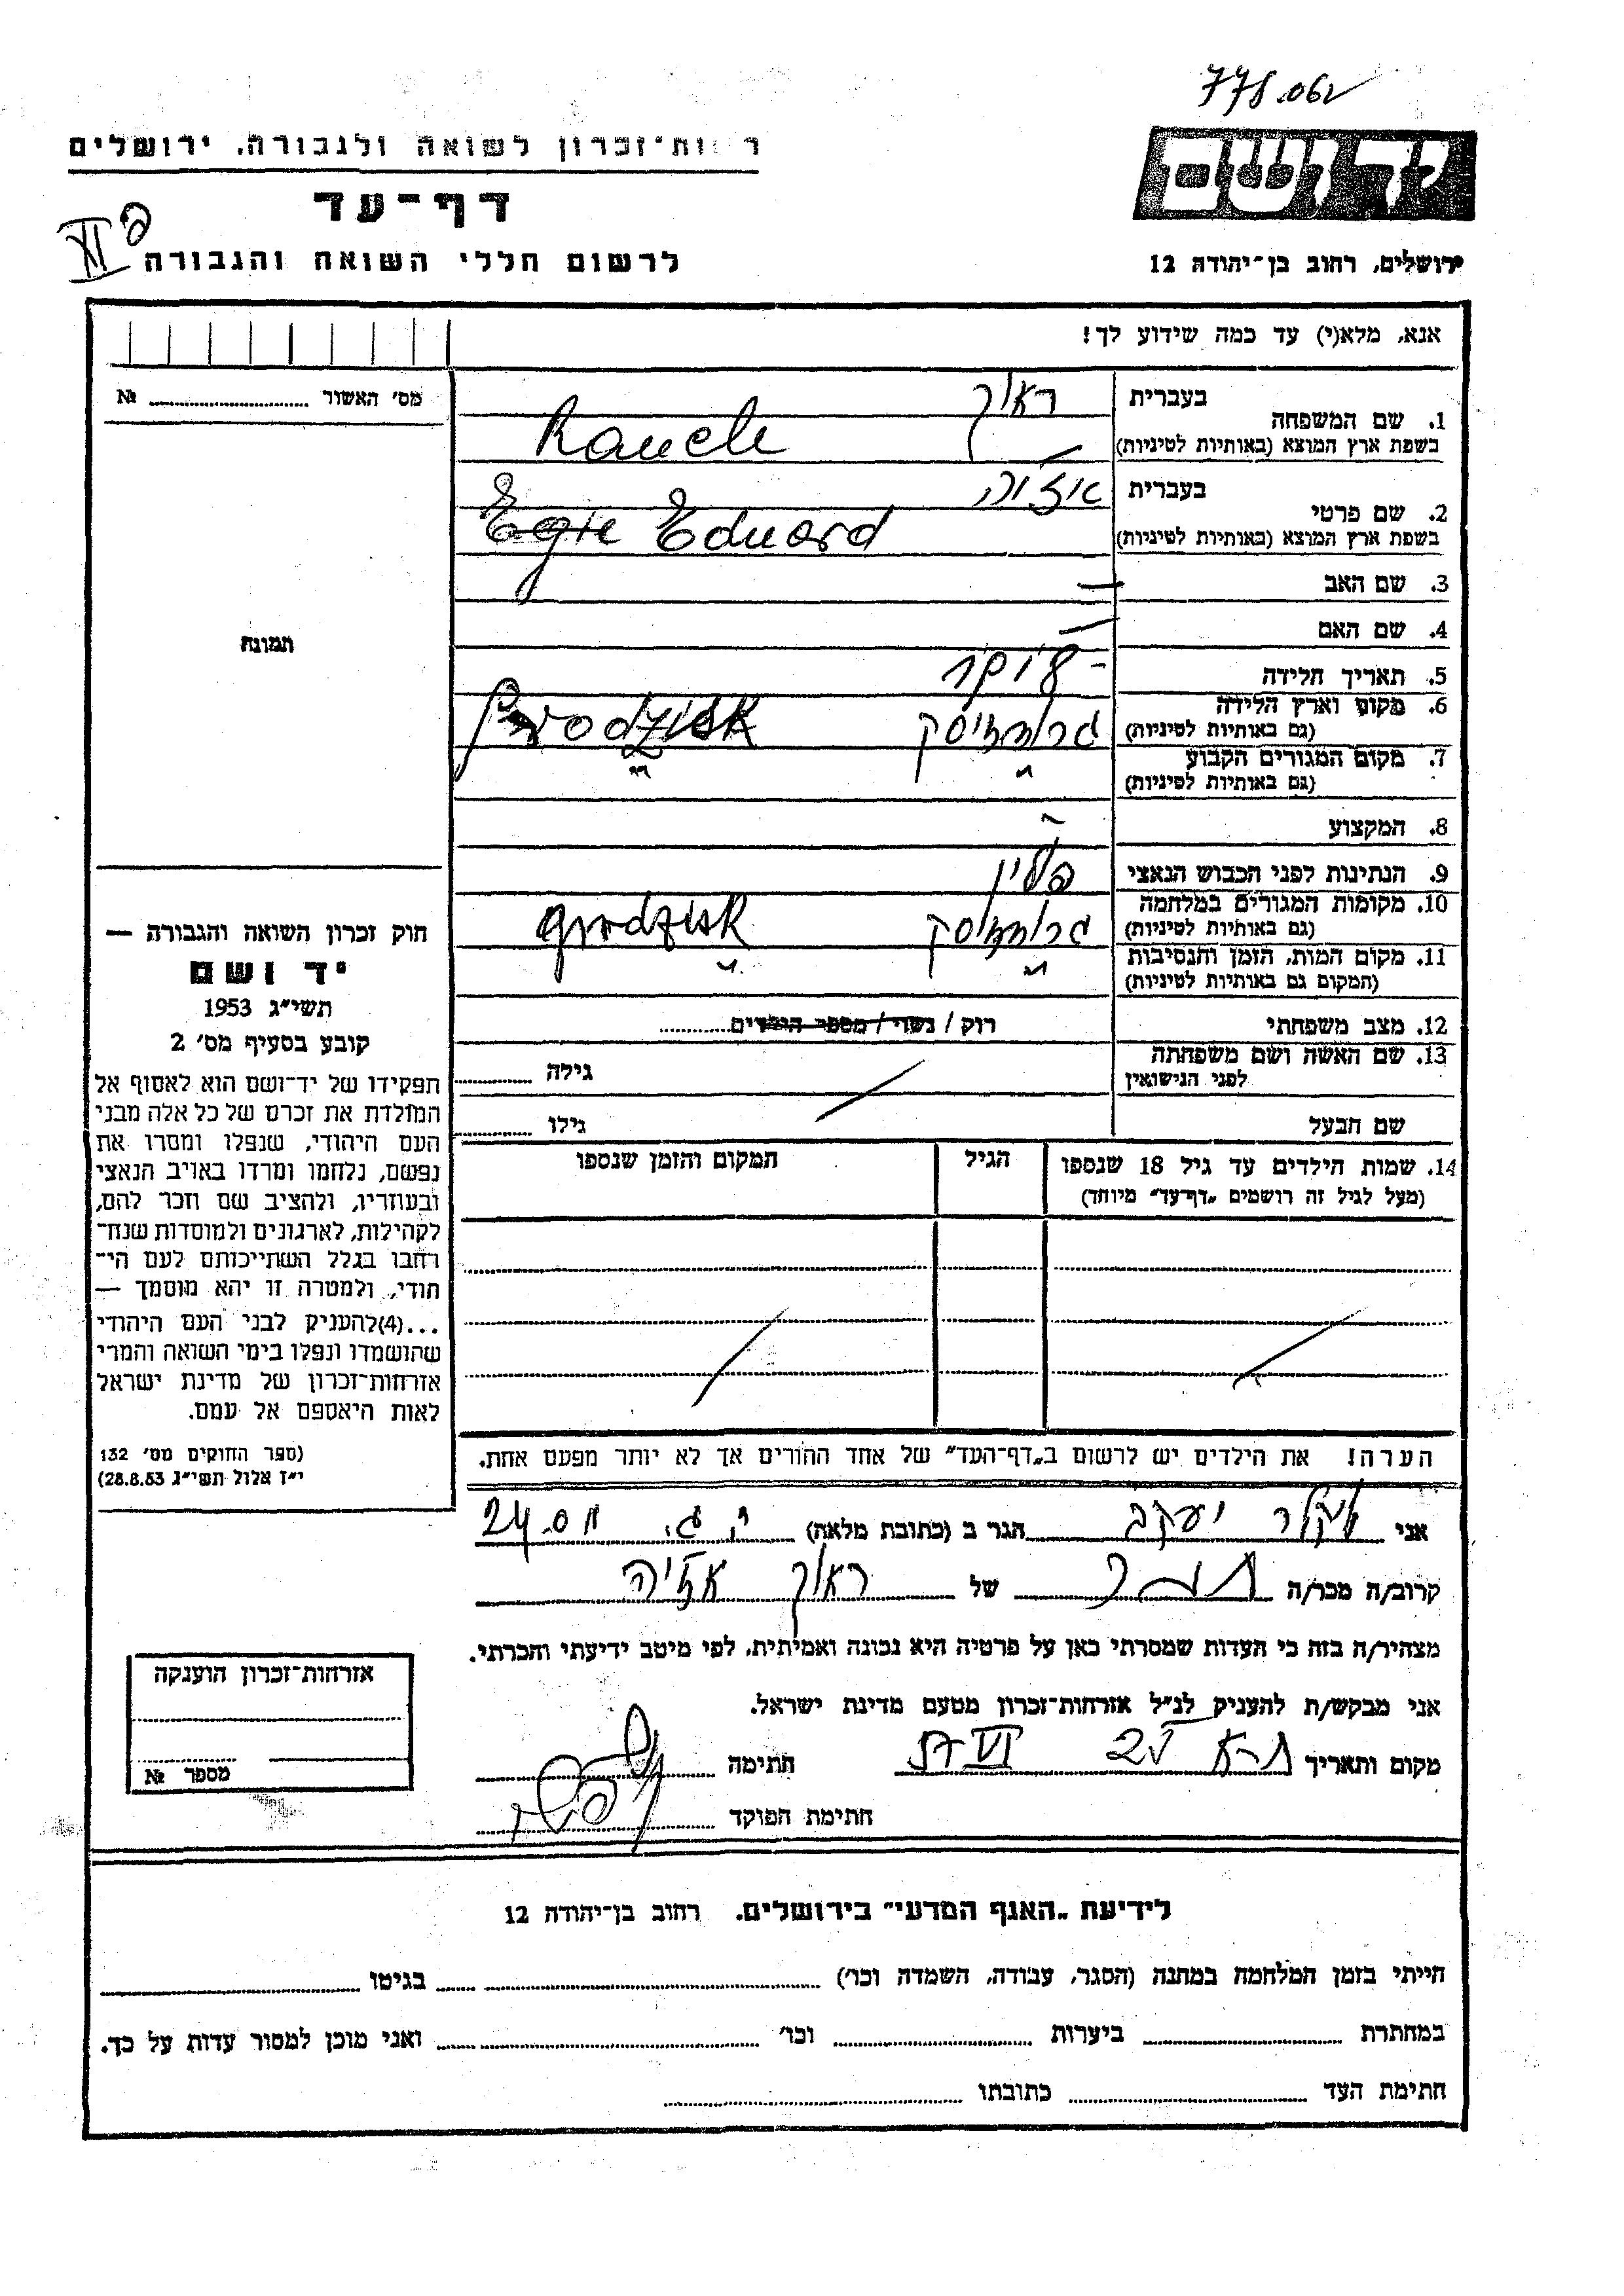 778.062
ות־זכרון לשואה ולגבורה. ירושלים
יד ושם
דף־עד
לרשום חללי השואה והגבורה
ירושלים, רחוב בן־יהודה 12
אנא, מלא(י) עד כמה שידוע לך!
מס' האשור № 
תמונה
1. שם המשפחה
בעברית ראוך
בשפת ארץ המוצא (באותיות לטיניות) Rauch
2. שם פרטי
בעברית
בשפת ארץ המוצא (באותיות לטיניות) Eduard
3. שם האב —
4. שם האם —
5. תאריך הלידה
6. מקום וארץ הלידה
(גם באותיות לטיניות) Grodzisk
7. מקום המגורים הקבוע
(גם באותיות לטיניות) "
8. המקצוע
9. הנתינות לפני הכבוש הנאצי פולין
10. מקומות המגורים במלחמה
(גם באותיות לטיניות) Grodzisk
11. מקום המות, הזמן והנסיבות
(המקום גם באותיות לטיניות) "
12. מצב משפחתי רוק / נשוי / מספר הילדים
13. שם האשה ושם משפחתה
לפני הנישואין גילה
שם הבעל גילו
14. שמות הילדים עד גיל 18 שנספו הגיל המקום והזמן שנספו
(מעל לגיל זה רושמים „דף־עד" מיוחד)
הערה! את הילדים יש לרשום ב„דף־העד" של אחד ההורים אך לא יותר מפעם אחת.
חוק זכרון השואה והגבורה —
יד ושם
תשי"ג 1953
קובע בסעיף מס' 2
תפקידו של יד־ושם הוא לאסוף אל
המולדת את זכרם של כל אלה מבני
העם היהודי, שנפלו ומסרו את
נפשם, נלחמו ומרדו באויב הנאצי
ובעוזריו, ולהציב שם וזכר להם,
לקהילות, לארגונים ולמוסדות שנח־
רבו בגלל השתייכותם לעם הי־
הודי, ולמטרה זו יהא מוסמך —
...(4)להעניק לבני העם היהודי
שהושמדו ונפלו בימי השואה והמרי
אזרחות־זכרון של מדינת ישראל
לאות היאספם אל עמם.
(ספר החוקים מס' 132
י"ז אלול תשי"ג 28.8.53)
אני יעקב הגר ב (כתובת מלאה)
קרוב/ה מכר/ה של ראוך
מצהיר/ה בזה כי העדות שמסרתי כאן על פרטיה היא נכונה ואמיתית, לפי מיטב ידיעתי והכרתי.
אני מבקש/ת להעניק לנ"ל אזרחות־זכרון מטעם מדינת ישראל.
מקום ותאריך ת־א חתימה
חתימת הפוקד
אזרחות־זכרון הוענקה
מספר №
לידיעת „האגף המדעי" בירושלים, רחוב בן־יהודה 12
הייתי בזמן המלחמה במחנה (הסגר, עבודה, השמדה וכו') בגיטו
במחתרת ביערות וכו' ואני מוכן למסור עדות על כך.
חתימת העד כתובתו